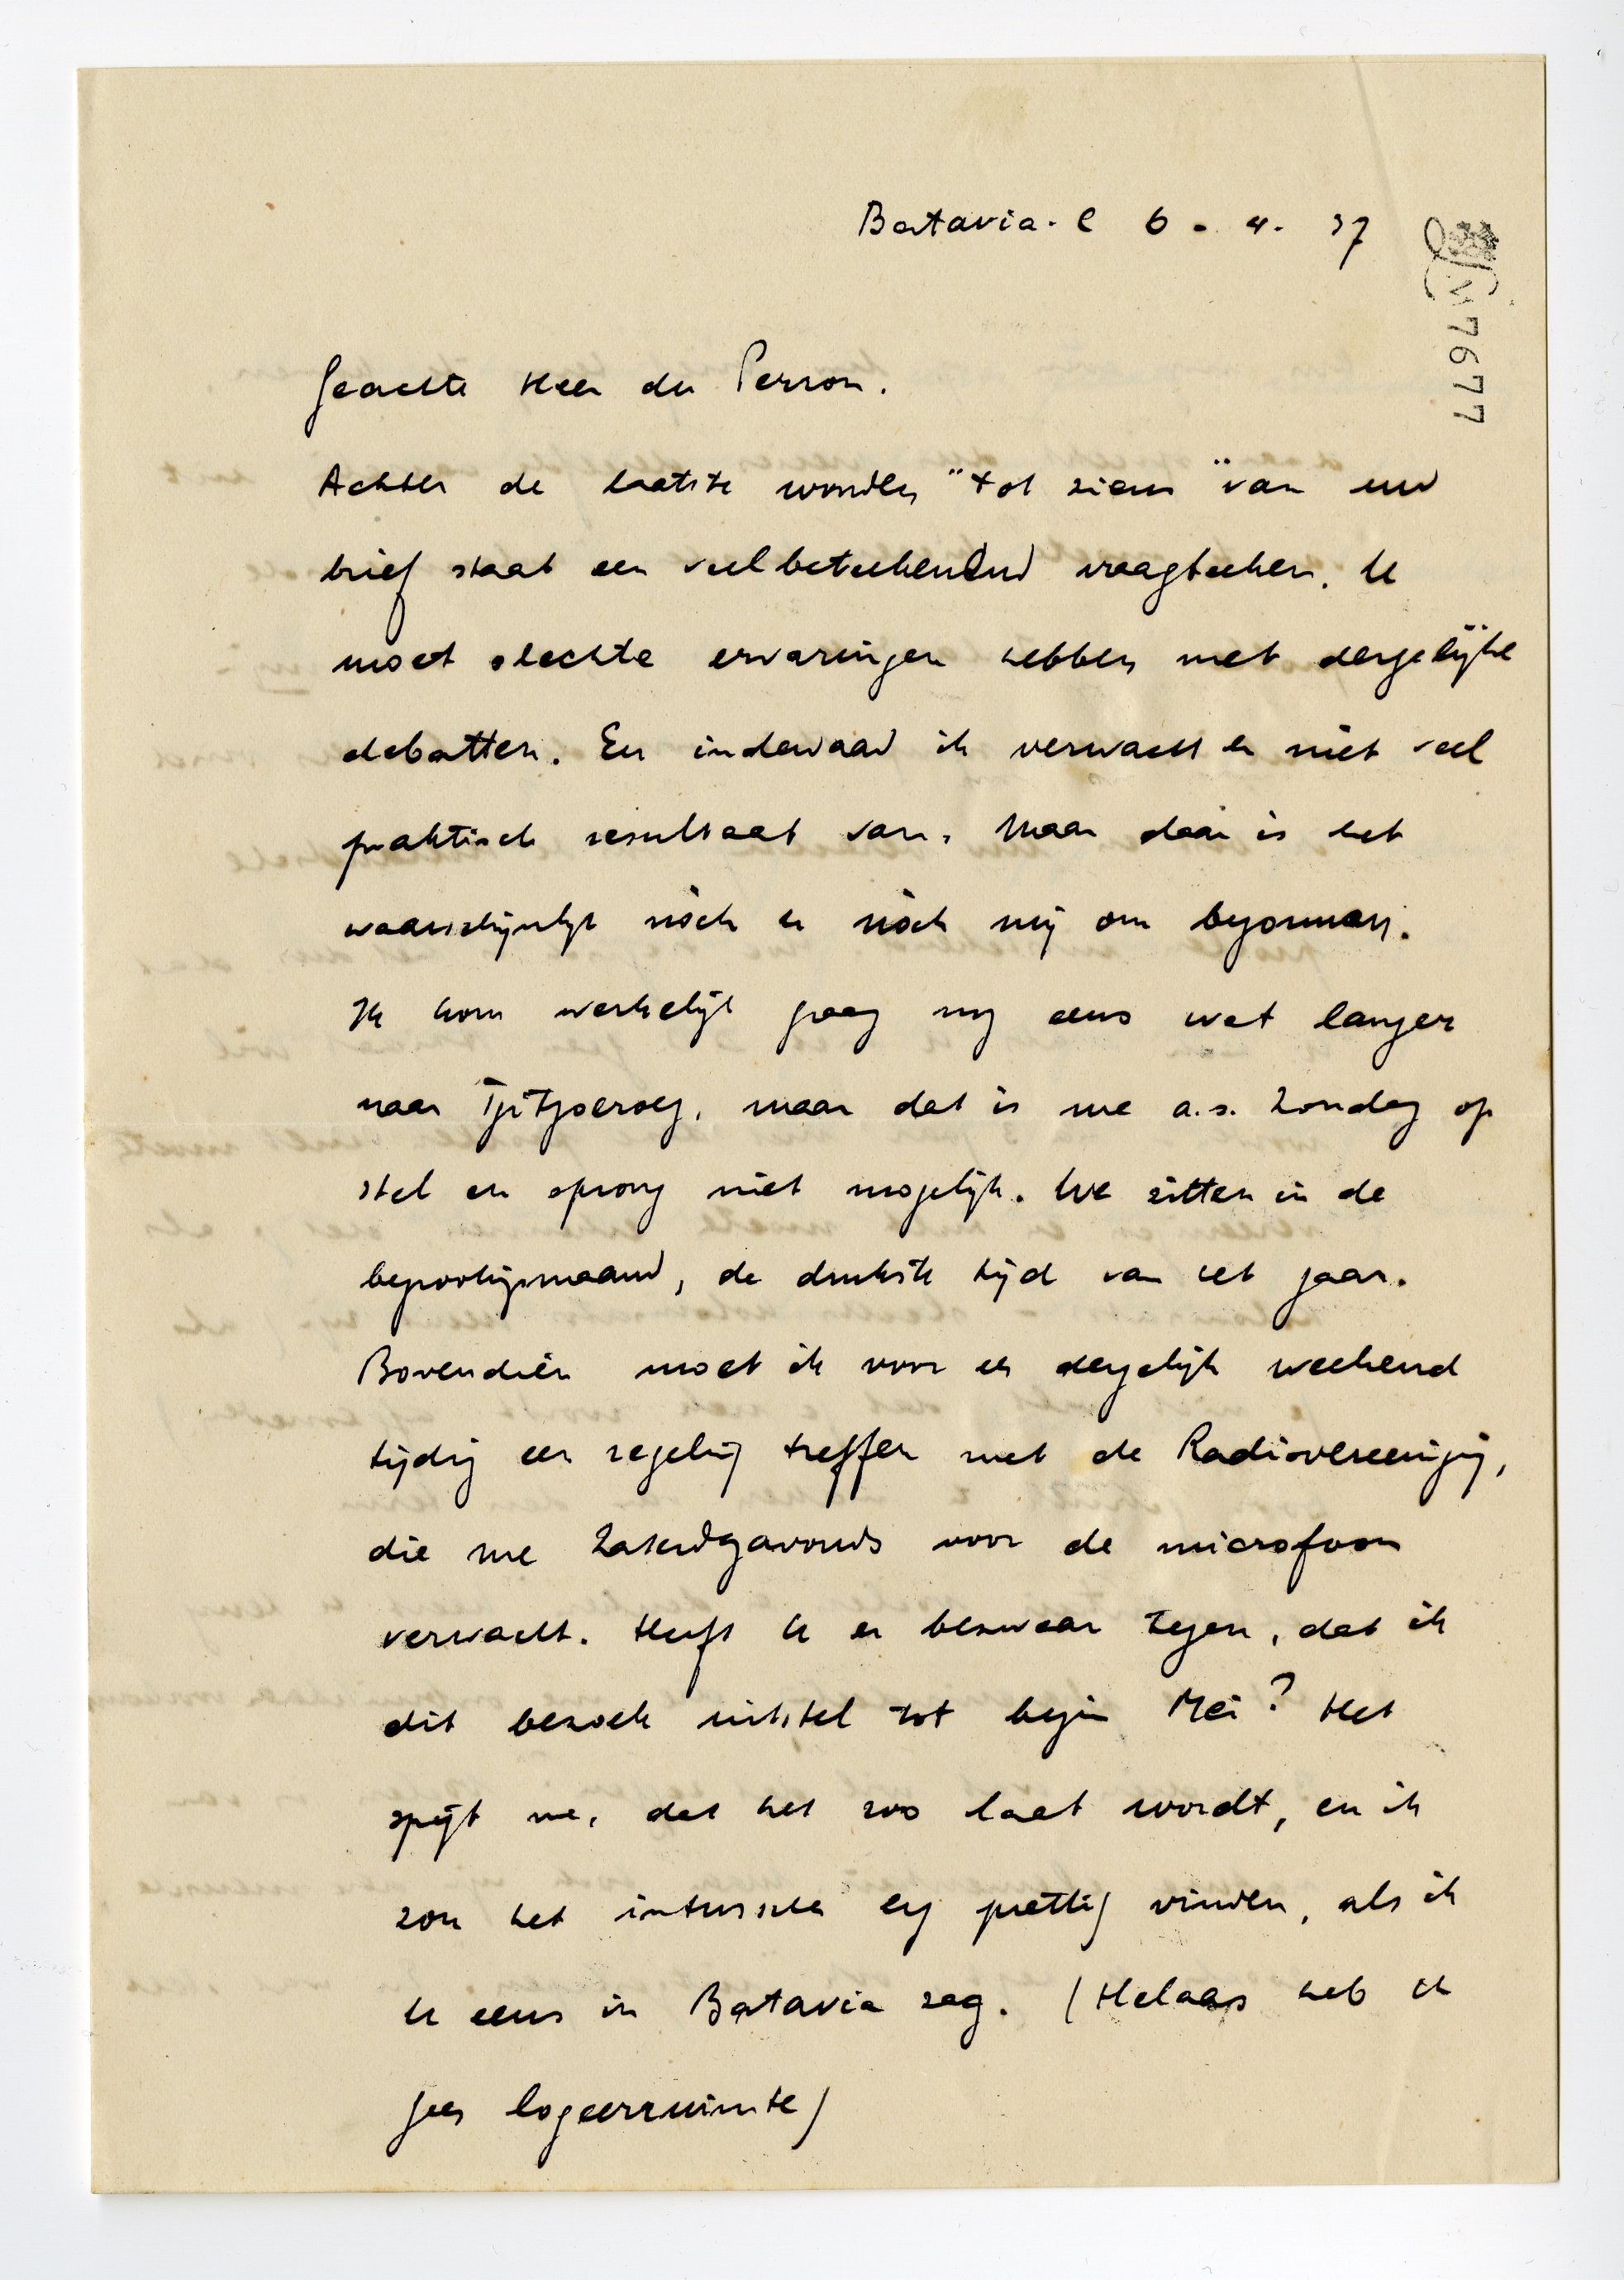 Batavia. C 6 - 4. 37
M 7677
Geachte Heer du Perron.
Achter de laatste woorden "tot ziens" van uw
brief staat een veelbeteekenend vraagteeken. U
moet slechte ervaringen hebben met dergelijke
debatten. En inderdaad ik verwacht er niet veel
praktisch resultaat van. Maar daar is het
waarschijnlijk nòch u nòch mij om begonnen.
Ik kom werkelijk graag nog eens wat langer
naar Tjitjoeroeg, maar dat is me a.s. Zondag op
stel en sprong niet mogelijk. We zitten in de
begrootingsmaand, de drukste tijd van het jaar.
Bovendien moet ik voor een dergelijk weekend
tijdig een regeling treffen met de Radiovereeniging,
die me Zaterdagavonds voor de microfoon
verwacht. Heeft U er bezwaar tegen, dat ik
dit bezoek uitstel tot begin Mei? Het
spijt me, dat het zoo laat wordt, en ik
zou het intusschen erg prettig vinden, als ik
U eens in Batavia zag. (Helaas heb ik
geen logeerruimte)